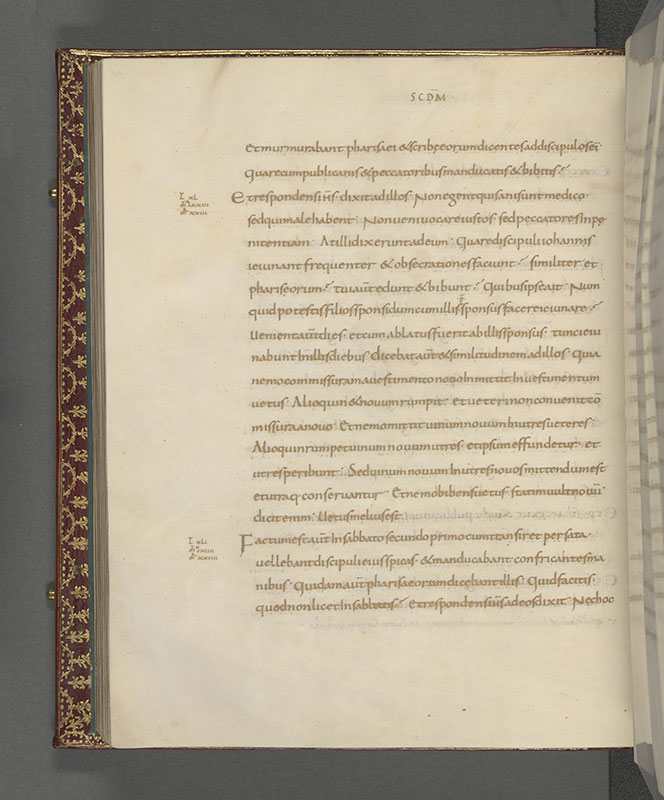 SCDM̄
Et murmurabant pharisaei & scribę eorum dicentes ad discipulos ei᾽
Quare cum publicanis & peccatoribus manducatis & bibitis
L xL
Et respondens ih̄s dixit ad illos Non egent qui sani sunt medico
sed qui male habent Non veni vocare iustos sed peccatores In pe
nitentiam At illi dixerunt ad eum Quare discipuli iohannis
ieiunant frequenter & obsecrationes faciunt similiter et
phariseorum tui aut̄ edunt & bibunt Quibus ipse ait Num
quid potestis filios sponsi dum cum illis ÷ sponsus facere ieiunare
Uenient aut̄ dies et cum ablatus fuerit ab illis sponsus tunc ieiu
nabunt In illis diebus dicebat aut̄ & similitudinem ad illos Quia
nemo commissuram a vestimento novo Inmittit In vestimentum
vetus Alioquin & novum rumpit et veteri non convenit cō
missura a novo Et nemo mittit vinum novum In utres veteres
Alioquin rumpet vinum novum utres et ipsum effundetur et
utres peribunt Sed vinum novum In utres novos mittendum est
et utraq conservantur Et nemo bibens vetus statim vult novū
dicit enim Uetus melius est
L xLi
Factum est aut̄ In sabbato secundo primo cum transiret per sata
vellebant discipuli eius spicas & manducabant confricantes ma
nibus Quidam aut̄ pharisaeorum dicebant illis Quid facitis
quod non licet In sabbatis Et respondens ih̄s ad eos dixit Nec hoc